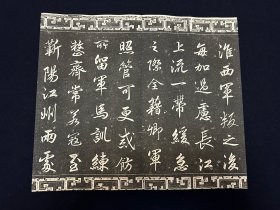 淮西軍叛之後
每加過慮長江
上流一帶緩急
之際全藉卿軍
照管可更戒飭
所留軍馬訓練
整齊常若寇至
蘄陽江州兩處